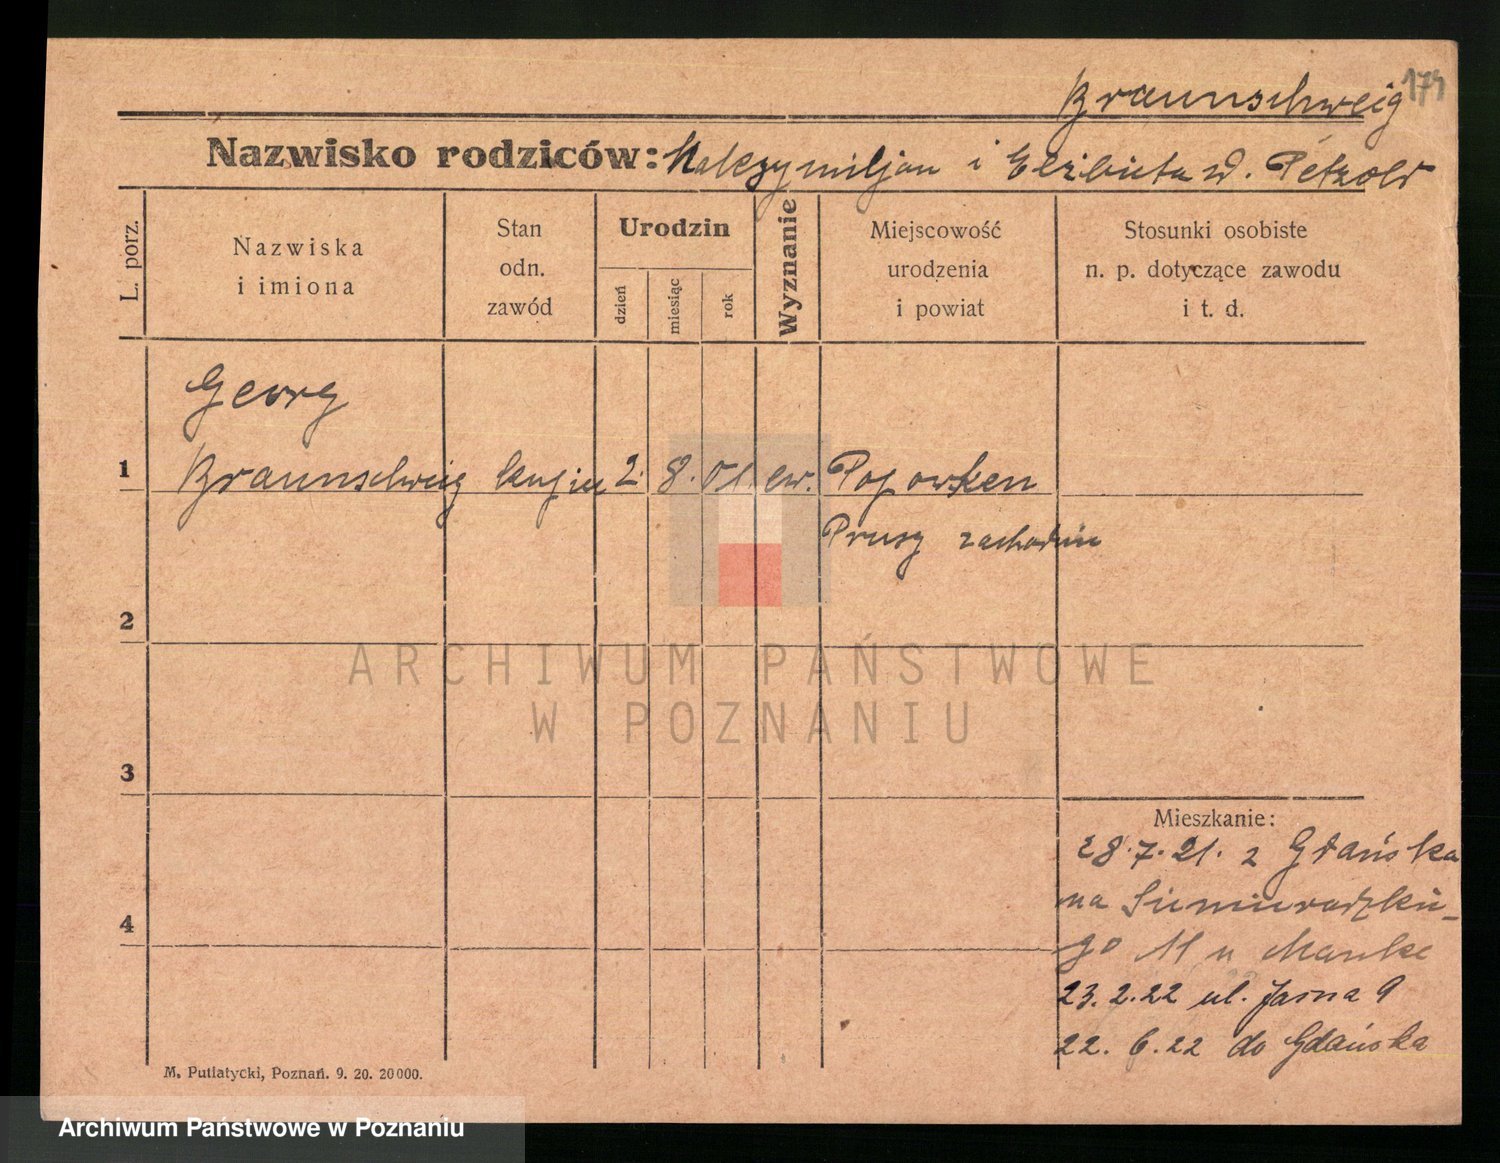 174
Braunschweig
Nazwisko rodziców: Maksymiljan i Elżbieta d. Petzold
L. porz.
Nazwiska
i imiona
Stan
odn.
zawód
Urodzin
dzień
miesiąc
rok
Wyznanie
Miejscowość
urodzenia
i powiat
Stosunki osobiste
n. p. dotyczące zawodu
i t. d.
Georg
1 Braunschweig 2. 8. 01 ew. Popowken
Prusy zachodnie
2
ARCHIWUM PAŃSTWOWE
W POZNANIU
3
Mieszkanie:
28.7.21. z Gdańska
na Siemieradzkie-
4
go 11 u Manke
23.2.22 ul. Jasna 9
22.6.22 do Gdańska
M. Putiatycki, Poznań. 9. 20. 20000.
Archiwum Państwowe w Poznaniu